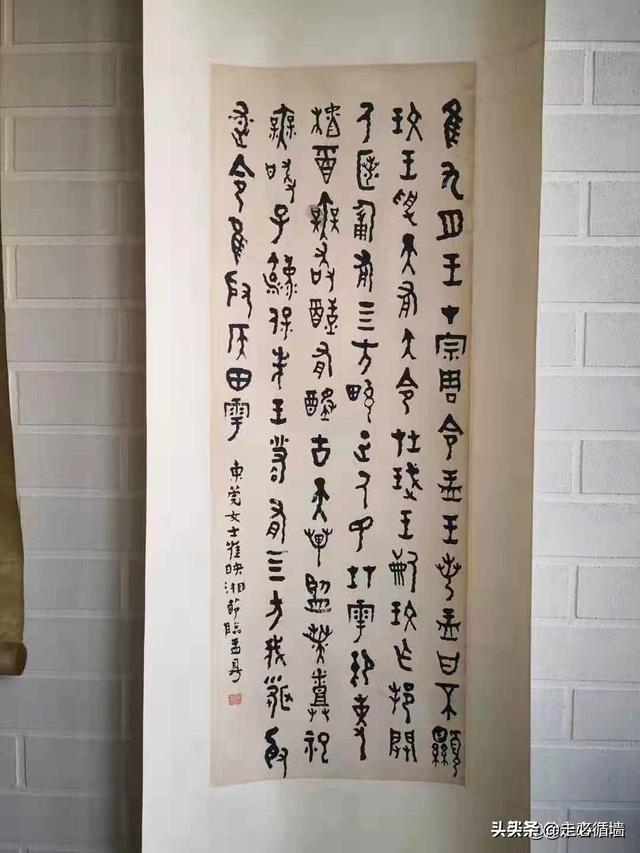 隹九月王才宗周令盂王若盂曰不顯
玟王受天有大令在珷王嗣玟乍邦闢
氒匿匍有三方畯正氒民在雩御事
酉無敢有古天祀
無子灋保先王有三方我聞殷
述令隹殷侯田雩
東莞女士崔映湘節臨盂鼎
头条 @走必循墙